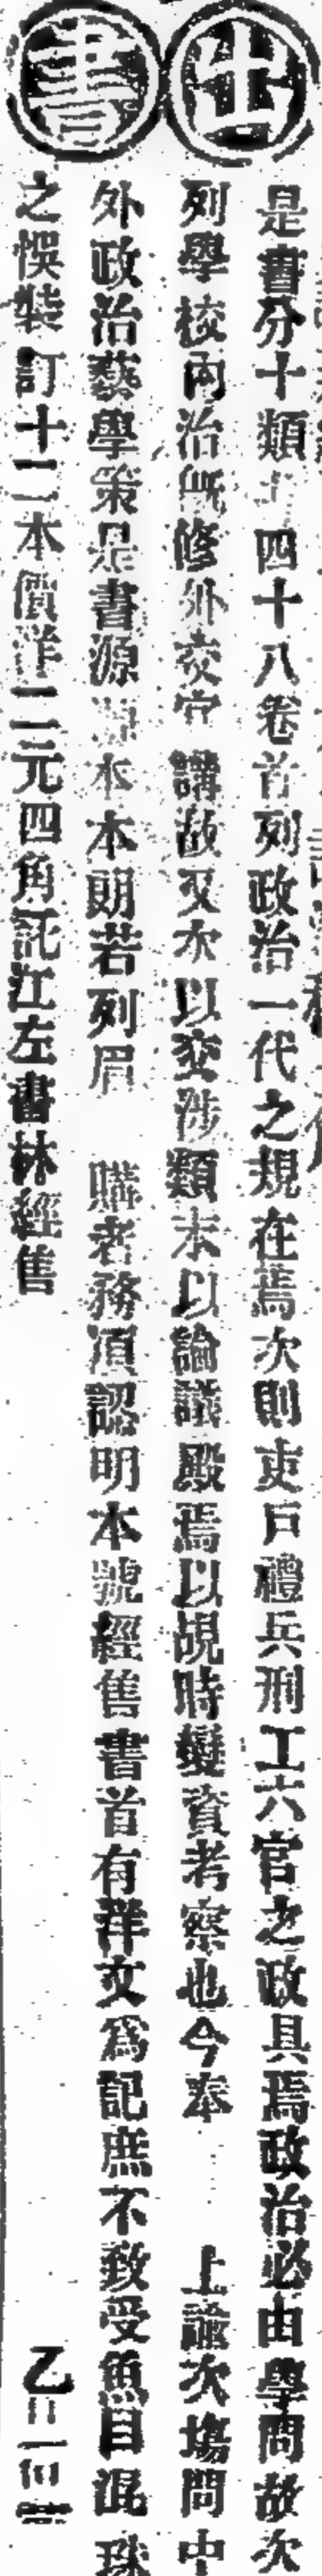 出書
是書分十類 四十八卷首列政治一代之規在焉次則吏戶禮兵刑工六官之政具焉政治必由學問故次
列學校內治既修外交宜講故又次以交涉類末以論議殿焉以覘時變資考察也今奉 上諭次塲問中
外政治藝學策是書源源本本朗若列眉 購者務須認明本號經售書首有洋文爲記庶不致受魚目混珠
之悞裝訂十二本價洋二元四角託江左書林經售